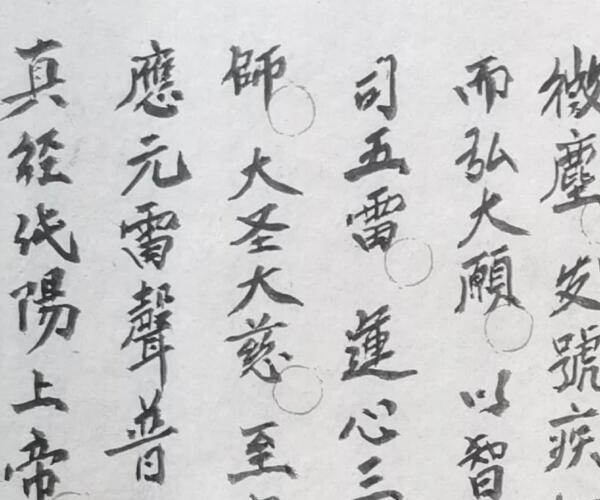 微塵 发號疾
而弘大願 以智
司五雷 蓮心三
師 大圣大慈 至
應元雷聲普
真經陽上帝